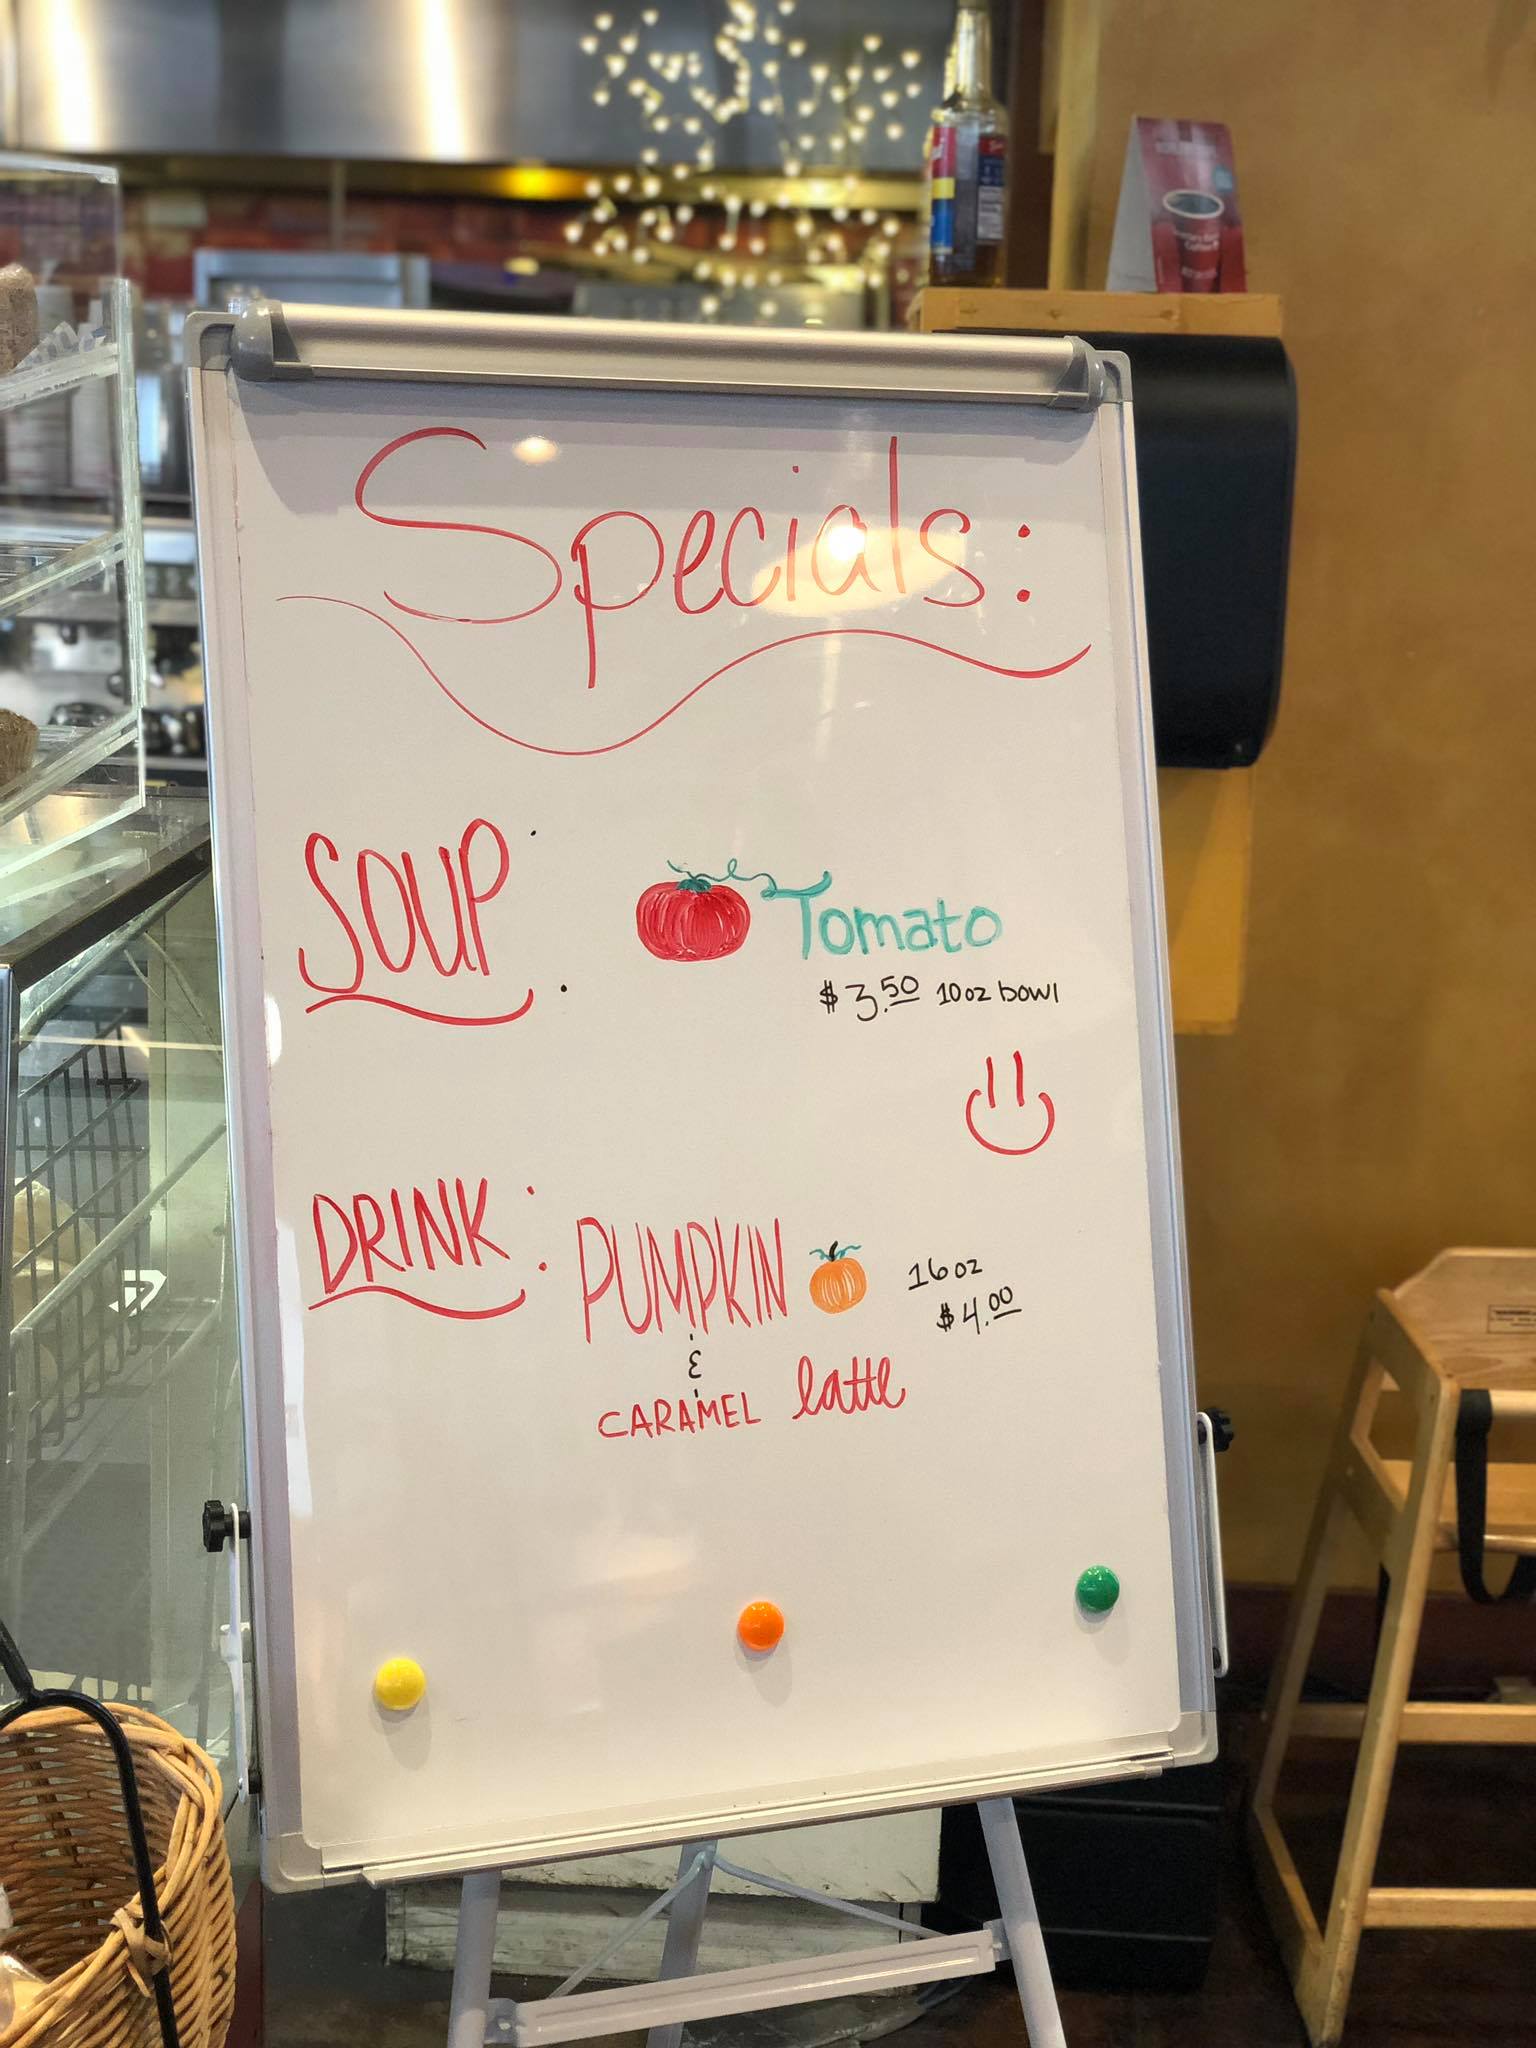 Specials:
SOUP:
Tomato
$3.50 10oz bowl
DRINK:
PUMPKIN
16oz
$4.00
&
CARAMEL latte